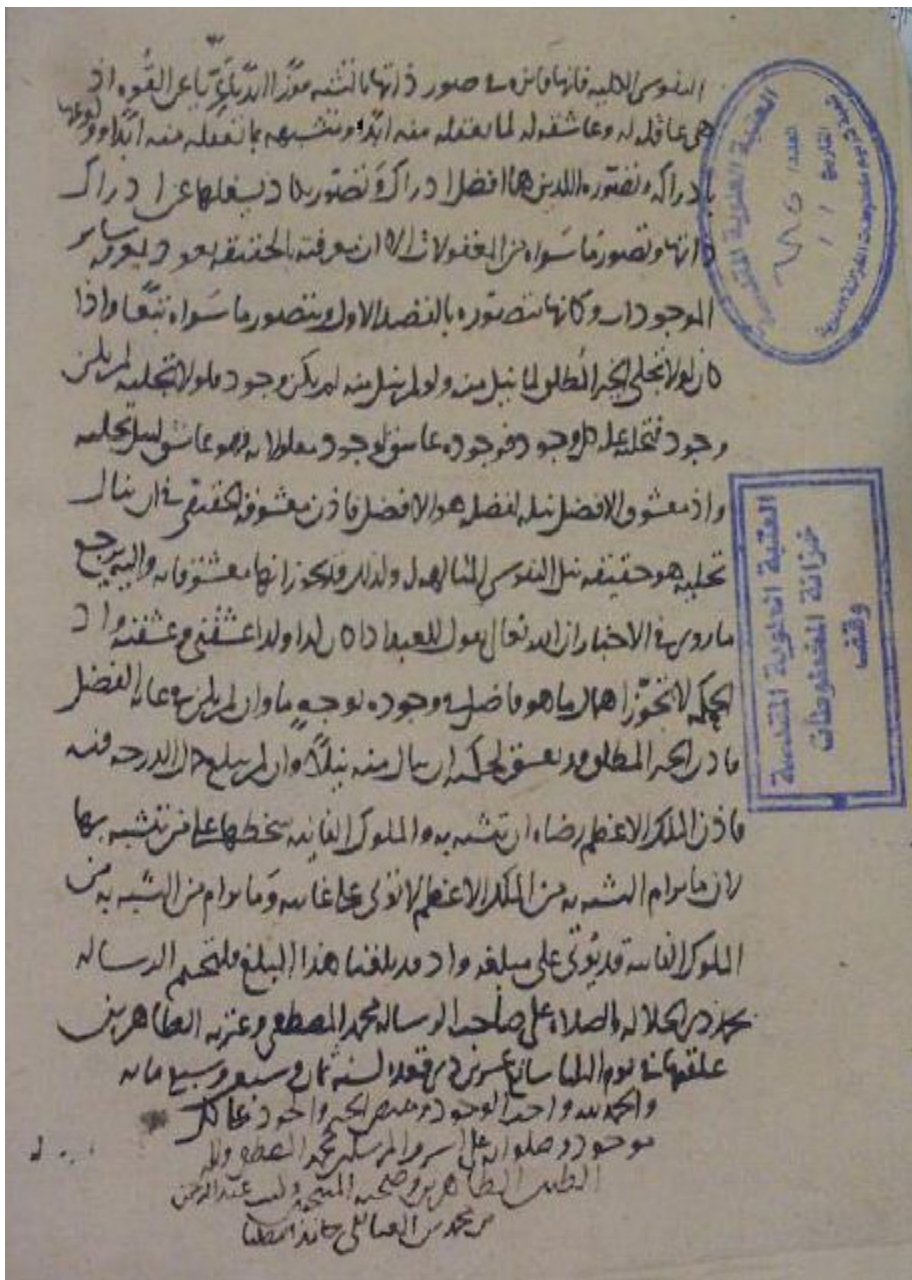 النفوس الالهيه فانها فائزه فى صور ذاتها بالتشبه به فوزا ابديا عريا عن القوه اذ
هى عاقله له وعاشقه له لما يعقله منه ابدا ومتشبهه بما تعقله منه ابدا وولوعها
بادراكه وتصوره اللذين هما افضل ادراك وتصور يكاد يشغلها عن ادراك
ذاتها وتصور ما سواه من المعقولات الا ان معرفته بالحقيقه تعود بمعرفه سائر
الموجودات وكانها تتصوره بالقصد الاول وتتصور ما سواه تبعا واذا
كان لولا تجلى الخير المطلق لما نيل منه ولو لم ينل منه لم يكن وجود فلولا تجليه لم يكن
وجود فتجليه عله كل وجود فوجوده عاشق لوجود معلولاته فهو عاشق لنيل تجليه
واذ معشوق الافضل نيله لفضله هو الافضل فاذن معشوقه الحقيقى فى ان ينال
تجليه هو حقيقه نيل النفوس المتالهه له ولذلك قد يجوز انها معشوقاته واليه يرجع
ما روى فى الاخبار ان الله تعالى يقول للعبد اذا كان كذا وكذا عشقنى وعشقته واذ
الحكمه لا تجوز اهمال ما هو فاضل فى وجوده بوجه ما وان لم يكن فى غايه الفضل
فاذن الخير المطلق قد يعشق لحكمته ان ينال منه نيلا وان لم يبلغ كمال الدرجه فيه
فاذن الملك الاعظم رضاه ان تشبه به والملوك الفانيه سخطها على من يتشبه بها
لان ما يرام التشبه به من الملك الاعظم لا يؤتى على غايته وما يرام من التشبه به من
الملوك الفانيه قد يؤتى على مبلغه واذ قد بلغنا هذا المبلغ فلنختم الرساله
بحمد ذى الجلاله والصلاه على صاحب الرساله محمد المصطفى وعترته الطاهرين
علقتها فى يوم الثلثا سابع عشرين ذى قعده لسنه ثمان وسبعين وسبع مائه
والحمد لله واجب الوجود ومفيض الخير والجود على كل
موجود وصلواته على اشرف المرسلين محمد المصطفى واله
الطيبين الطاهرين وصحبه المنتجبين وكتب عبد الرحمن
بن محمد بن العتائقى حامدا مصليا
العتبة العلوية المقدسة
العدد /
التاريخ / /
العتبة العلوية المقدسة
خزانة المخطوطات
وقف